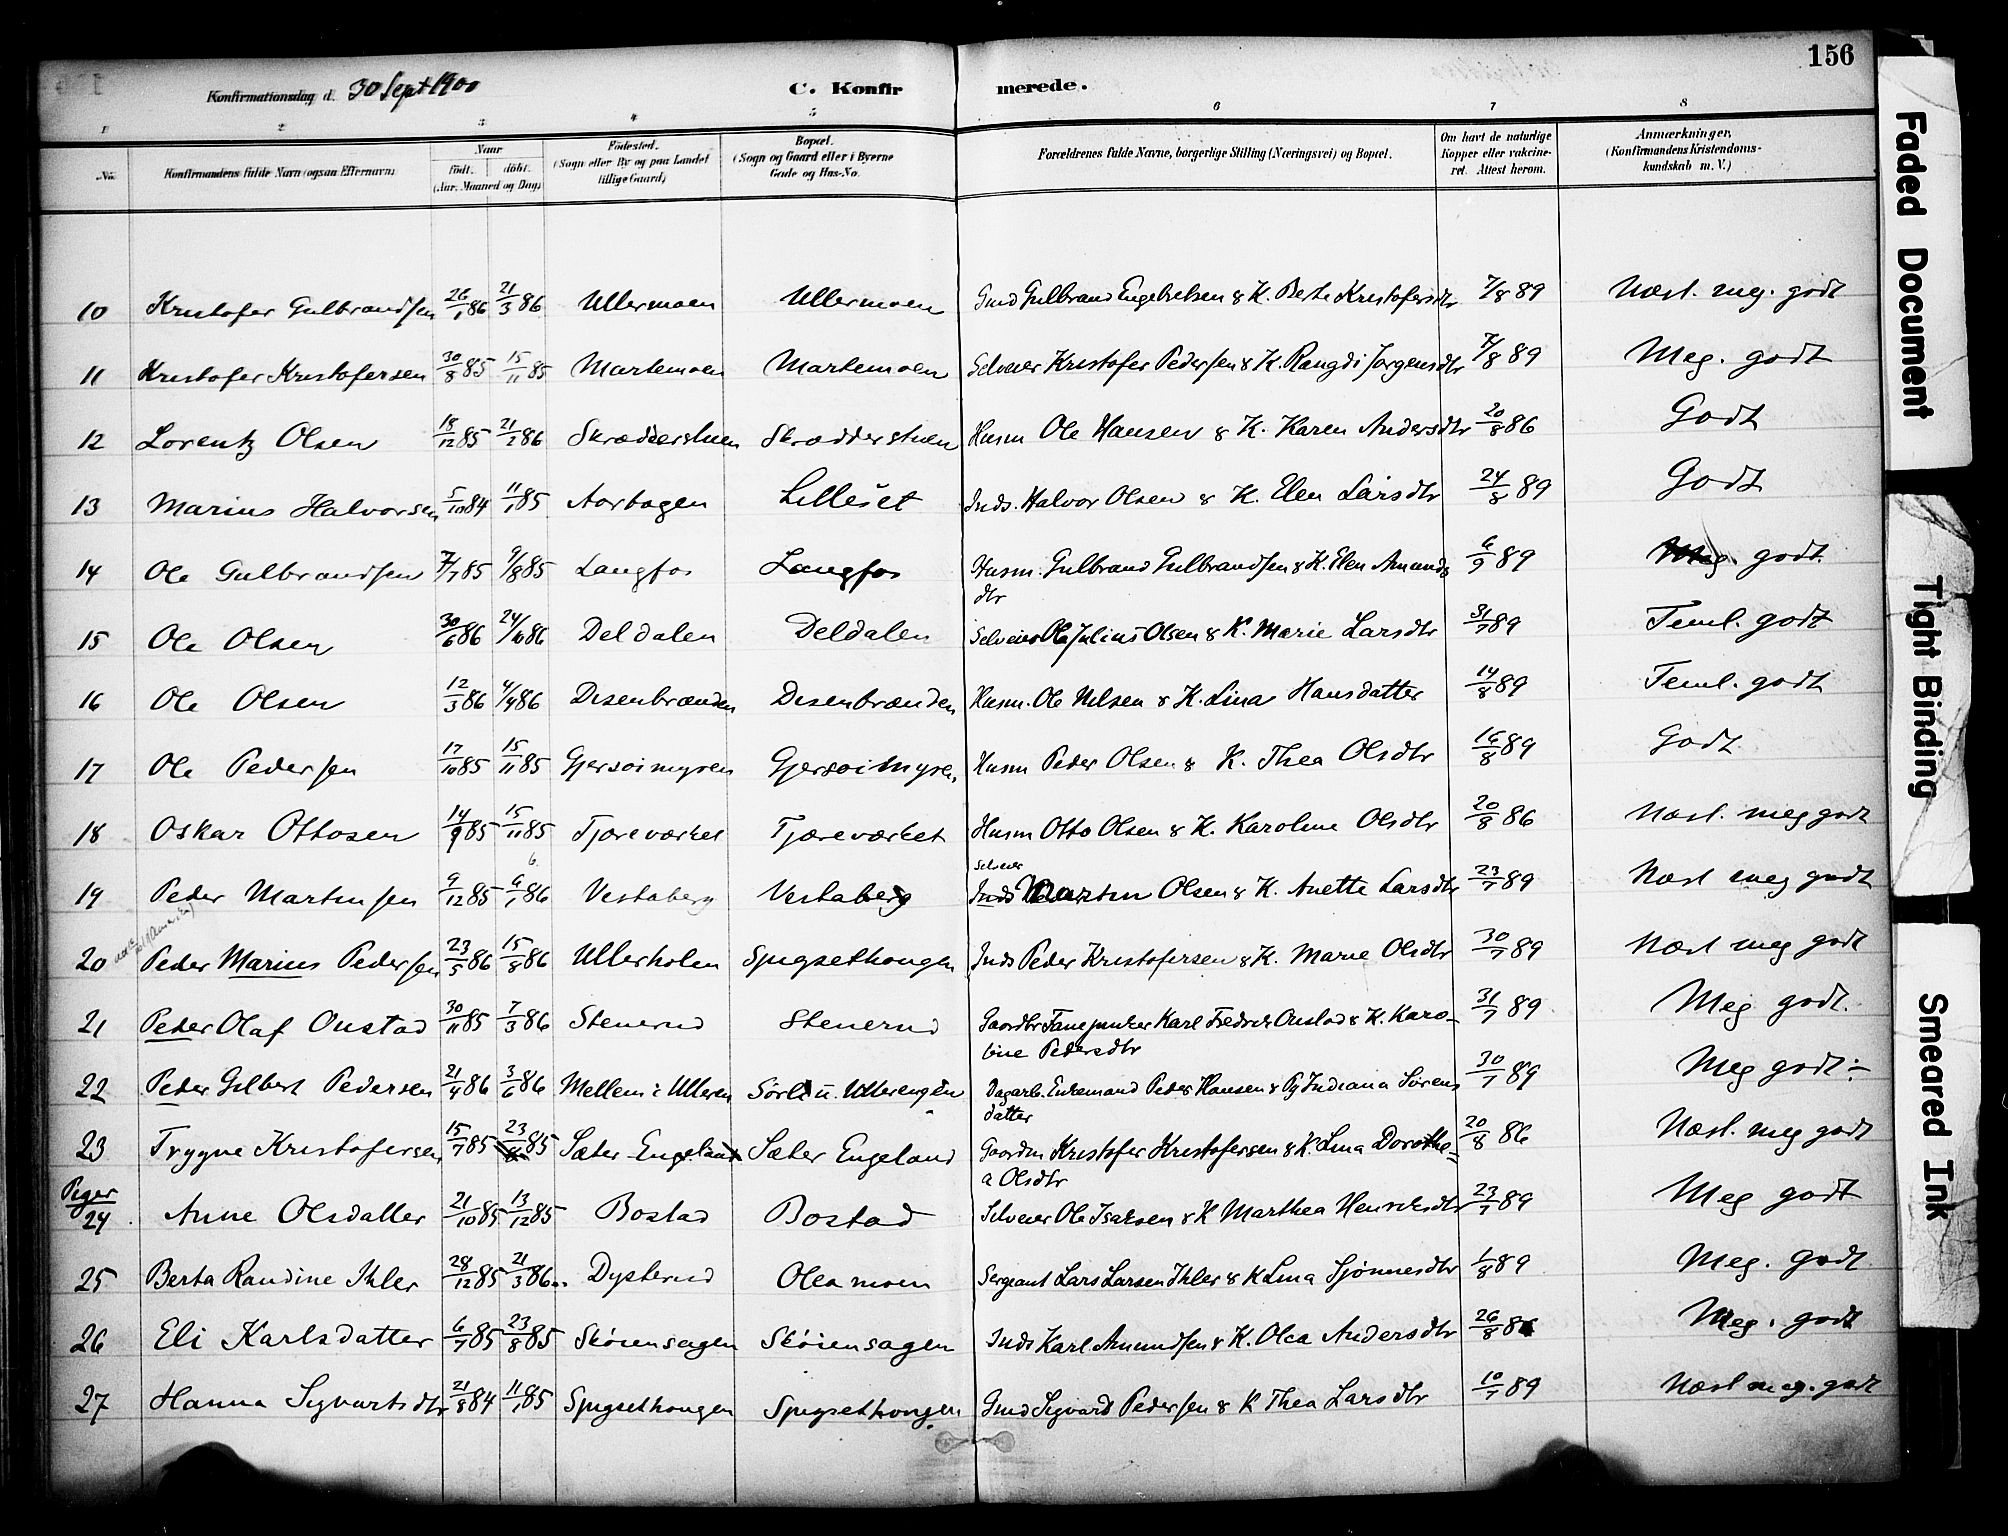 156
Konfirmationsdag d. 30 Sept 1900 C. Konfirmerede.
1 2 3 4 5 6 7 8
No. Konfirmandens fulde Navn (ogsaa Efternavn) Naar født. døbt. (Aar, Maaned og Dag) Fødested. (Sogn eller By og paa Landet tillige Gaard) Bopæl. (Sogn og Gaard eller i Byerne Gade og Hus-No. Forældrenes fulde Navne, borgerlige Stilling (Næringsvei) og Bopæl. Om havt de naturlige Kopper eller vakcineret. Attest herom. Anmærkninger, (Konfirmandens Kristendomskundskab m. V.)
10 Kristofer Gulbrandsen 26/1 86 21/3 86 Ullermoen Ullermoen Gmd Gulbrand Engebretsen & K. Berte Kristofersdtr 7/8 89 Næst. meg. godt
11 Kristofer Kristofersen 30/8 85 15/11 85 Martemoen Martemoen Selveier Kristofer Pedersen & K. Rangdi Jørgensdtr 7/8 89 Meg. godt
12 Lorentz Olsen 18/12 85 21/2 86 Skrædderstuen Skrædderstuen Husm Ole Hansen & K. Karen Andersdtr 20/8 86 Godt
13 Marius Halvorsen 5/10 84 11/1 85 Aarbogen Lilleset Inds. Halvor Olsen & K. Elen Larsdtr 24/8 89 Godt
14 Ole Gulbrandsen 7/7 85 9/8 85 Langfos Langfos Husm. Gulbrand Gulbrandsen & K. Elen Amunds
dtr 6/9 89 Meg. godt.
15 Ole Olsen 30/6 86 24/10 86 Deldalen Deldalen Selveier Ole Julius Olsen & K. Marie Larsdtr 31/7 89 Teml. godt
16 Ole Olsen 12/3 86 4/4 86 Disenbrænden Disenbrænden Husm. Ole Nilsen & K. Lina Hansdatter 14/8 89 Teml. godt
17 Ole Pedersen 17/10 85 15/11 85 Gjersøimyren Gjersøimyren Husm Peder Olsen & K. Thea Olsdtr 16/8 89 Godt
18 Oskar Ottosen 14/9 85 15/11 85 Tjæreværket Tjæreværket Husm Otto Olsen & K. Karoline Olsdtr 20/8 86 Næst. meg godt
6. Selveier
19 Peder Martinsen 9/12 85 6/1 86 Vestaberg Vestaberg Inds Martin Olsen & K. Anette Larsdtr 23/7 89 Næst meg godt
20 Peder Marius Pedersen 23/5 86 15/8 86 Ullerholen Spigsethougen Inds Peder Kristofersen & K. Marie Olsdtr 30/7 89 Næst meg godt
21 Peder Olaf Onstad 30/11 85 7/3 86 Stenerud Stenerud Gaardbr Fanejunker Karl Fredrik Onstad & K. Karo-
line Pedersdtr 31/7 89 Meg godt.
22 Peder Gilbert Pedersen 21/4 86 3/6 86 Mellem i Ulleren Sørli u. Ullerengen Dagarb. Enkemand Peder Hansen & Pg Indiana Sørens
datter 30/7 89 Meg godt ÷
23 Trygve Kristofersen 15/7 85 23/8 85 Sæter Engeland Sæter Engeland Gaardm Kristofer Kristofersen & K. Lina Dorothe=
a Olsdtr 20/8 86 Næst. meg godt
Piger
24 Anne Olsdatter 21/10 85 13/12 85 Bostad Bostad Selveier Ole Isaksen & K Marthea Henriksdtr 23/7 89 Meg godt
25 Berta Randine Ihler 28/12 85 21/3 86 Dysterud Oleamoen Sergeant Lars Larsen Ihler & K Lina Sjønnesdtr 1/8 89 Meg. godt
26 Eli Karlsdatter 6/7 85 23/8 85 Skøiensagen Skøiensagen Inds Karl Amundsen & K. Olea Andersdtr 26/8 86 Meg. godt
27 Hanna Sigvartsdtr 21/8 84 11/1 85 Spigsethougen Spigsethougen Gmd Sigvard Pedersen & K Thea Larsdtr 10/7 89 Næst meg. godt
Faded Document
Tight Binding
Smeared Ink